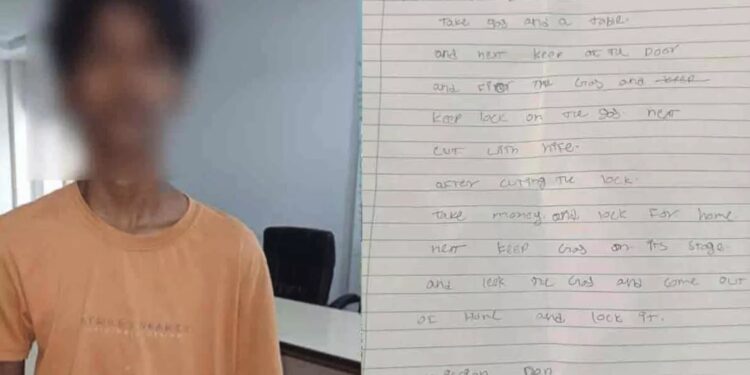 take gas and a table.
and next keep at the Door
and fire the Gas and keep
keep lock on the gas next
cut with nife.
after cutting the lock.
take money and lock for home
next keep Gas on its stage
and leak the Gas and come out
of Home and lock it.
Pen